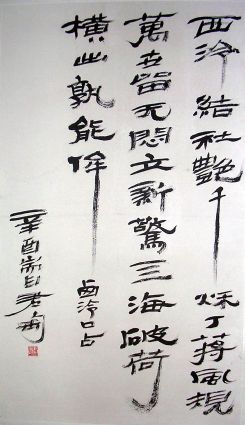 西泠結社艷千秋丁蔣風規
萬世留无悶文新驚三海破荷
橫出孰能侔 西泠口占
辛酉 君匋